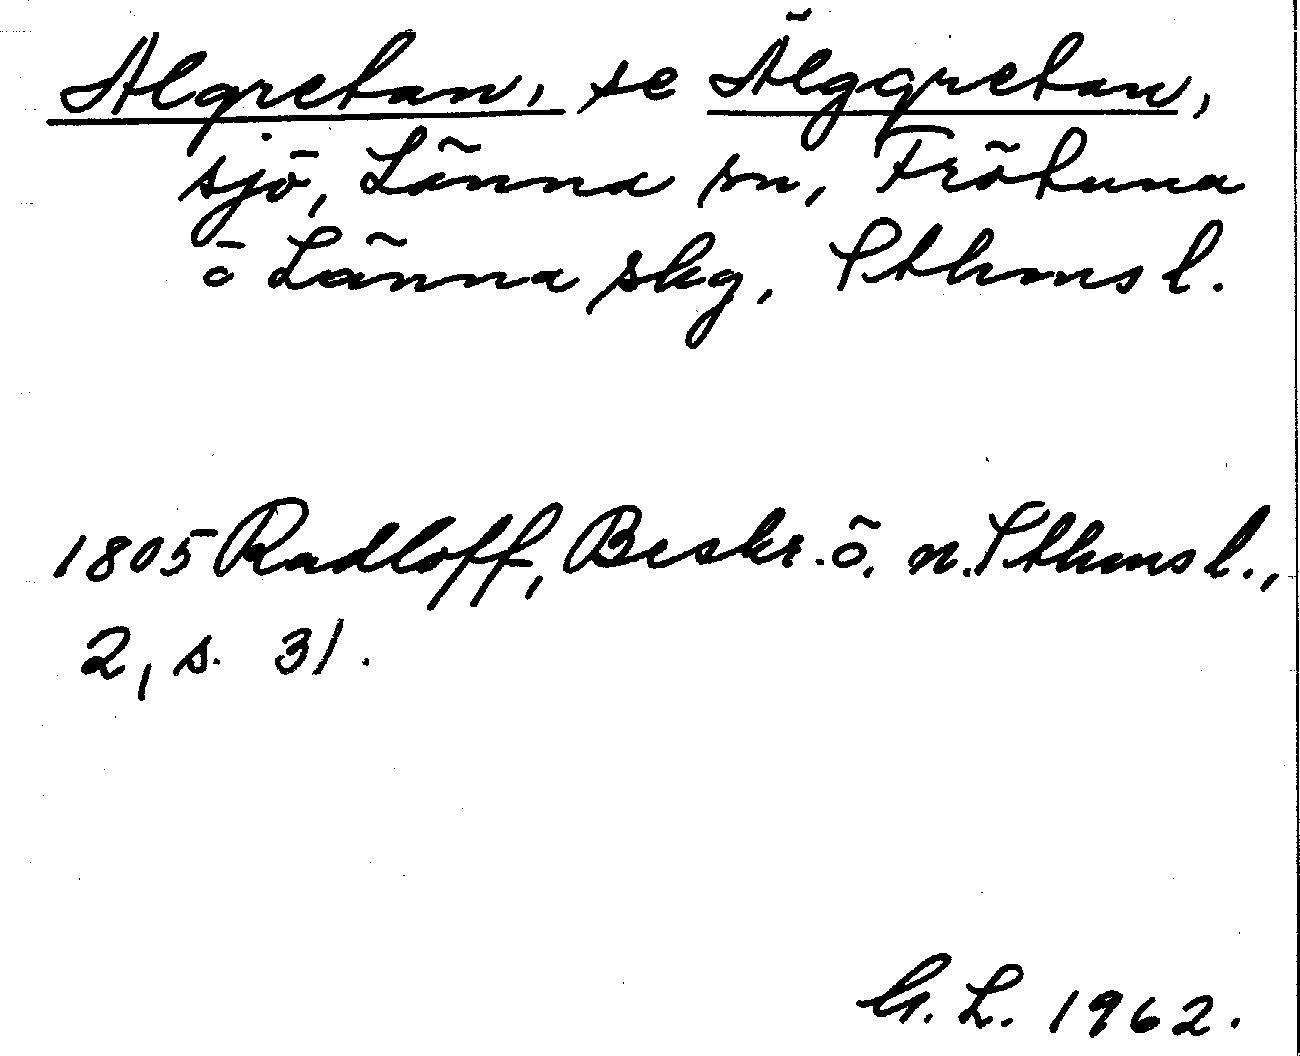 Algretan, se Älggretan,
sjö, Länna sn, Frötuna
o Länna skg, Sthms l.
1805 Radloff, Beskr. ö. n. Sthms l.,
2, s. 31.
G. L. 1962.